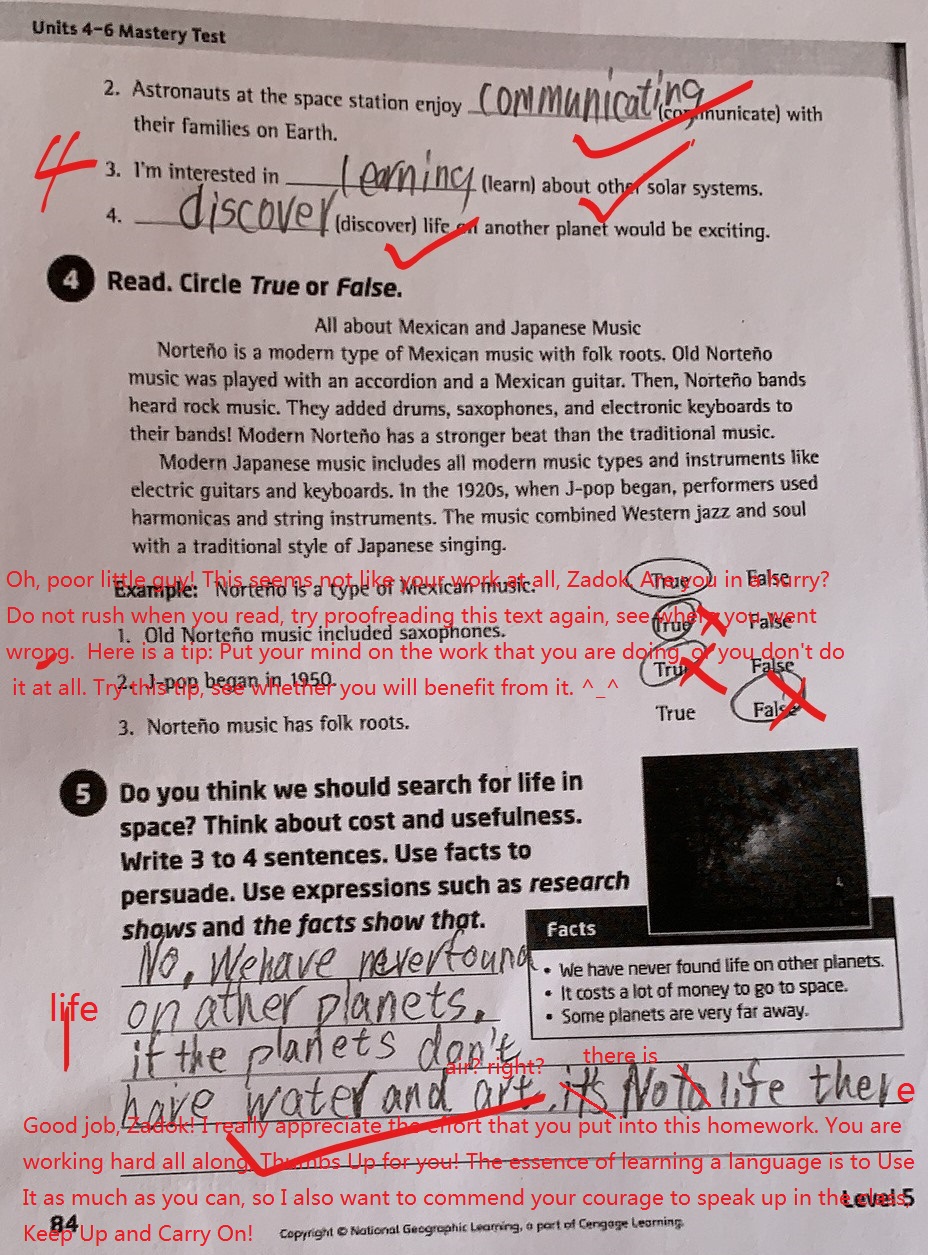 Units 4–6 Mastery Test
2. Astronauts at the space station enjoy communicating (communicate) with
their families on Earth.
4
3. I'm interested in learning (learn) about other solar systems.
4. discover (discover) life on another planet would be exciting.
4 Read. Circle True or False.
All about Mexican and Japanese Music
Norteño is a modern type of Mexican music with folk roots. Old Norteño
music was played with an accordion and a Mexican guitar. Then, Norteño bands
heard rock music. They added drums, saxophones, and electronic keyboards to
their bands! Modern Norteño has a stronger beat than the traditional music.
Modern Japanese music includes all modern music types and instruments like
electric guitars and keyboards. In the 1920s, when J-pop began, performers used
harmonicas and string instruments. The music combined Western jazz and soul
with a traditional style of Japanese singing.
Oh, poor little guy! This seems not like your work at all, Zadok. Are you in a hurry?
Example: Norteño is a type of Mexican music. True False
Do not rush when you read, try proofreading this text again, see where you went
1. Old Norteño music included saxophones. True False
wrong. Here is a tip: Put your mind on the work that you are doing, or you don't do
2. J-pop began in 1950. True False
it at all. Try this tip, see whether you will benefit from it. ^_^
3. Norteño music has folk roots. True False
5 Do you think we should search for life in
space? Think about cost and usefulness.
Write 3 to 4 sentences. Use facts to
persuade. Use expressions such as research
shows and the facts show that.
Facts
• We have never found life on other planets.
• It costs a lot of money to go to space.
• Some planets are very far away.
No, We have never found
life
on ather planets.
if the planets don't
air? right? there is
have water and art. it's No to life there
Good job, Zadok! I really appreciate the effort that you put into this homework. You are
working hard all along. Thumbs Up for you! The essence of learning a language is to Use
It as much as you can, so I also want to commend your courage to speak up in the class,
Keep Up and Carry On!
Level 5
84
Copyright © National Geographic Learning, a part of Cengage Learning.